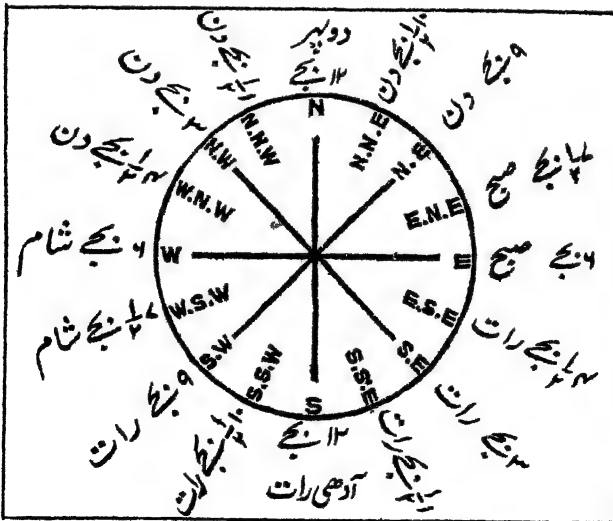 دوپہر
۱۲ بجے
N
۱۰ ۱/۲ بجے دن
N.N.E
۹ بجے دن
N.E
۷ ۱/۲ بجے صبح
E.N.E
۶ بجے صبح
E
۴ ۱/۲ بجے رات
E.S.E
۳ بجے رات
S.E
۱ ۱/۲ بجے رات
S.S.E
S
۱۲ بجے
آدھی رات
S.S.W
۱۰ ۱/۲ بجے رات
S.W
۹ بجے رات
W.S.W
۷ ۱/۲ بجے شام
W
۶ بجے شام
W.N.W
۴ ۱/۲ بجے دن
N.W
۳ بجے دن
N.N.W
۱ ۱/۲ بجے دن